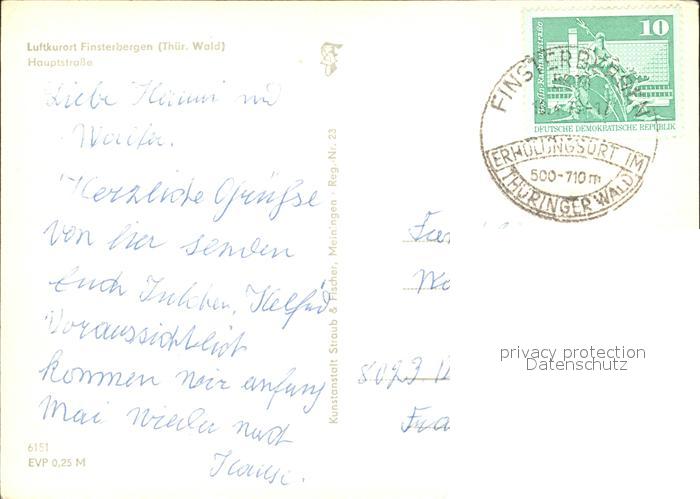 Luftkurort Finsterbergen (Thür. Wald)
Hauptstraße
Liebe Hanni und
Walter.
Herzliche Grüße
von hier senden
Euch
Voraussichtlich
kommen wir anfang
Mai wieder nach
Hause.
6151
EVP 0,25 M
Kunstanstalt Straub & Fischer, Meiningen · Reg.-Nr. 23
10
DEUTSCHE DEMOKRATISCHE REPUBLIK
FINSTERBERGEN
ERHOLUNGSORT IM
500-710 m
THÜRINGER WALD
Fa
Wa
8023
privacy protection
Datenschutz